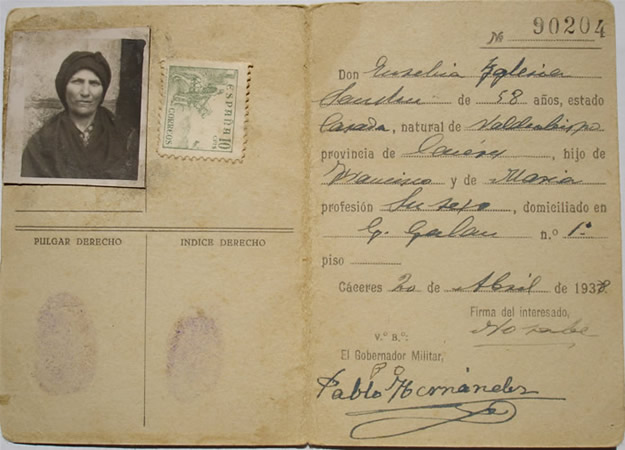 ESPAÑA 10
CORREOS
CTS
PULGAR DERECHO
INDICE DERECHO
Nº 90204
Don Eusebia Iglesias
de 58 años, estado
Casada, natural de Valdeobispo
provincia de Cáceres, hijo de
Francisco y de Maria
profesión Su sexo, domiciliado en
G. Galan n.º 1º
piso
Cáceres 20 de Abril de 1938
Firma del interesado,
No sabe
V.º B.º:
El Gobernador Militar,
P O
Pablo Hernández